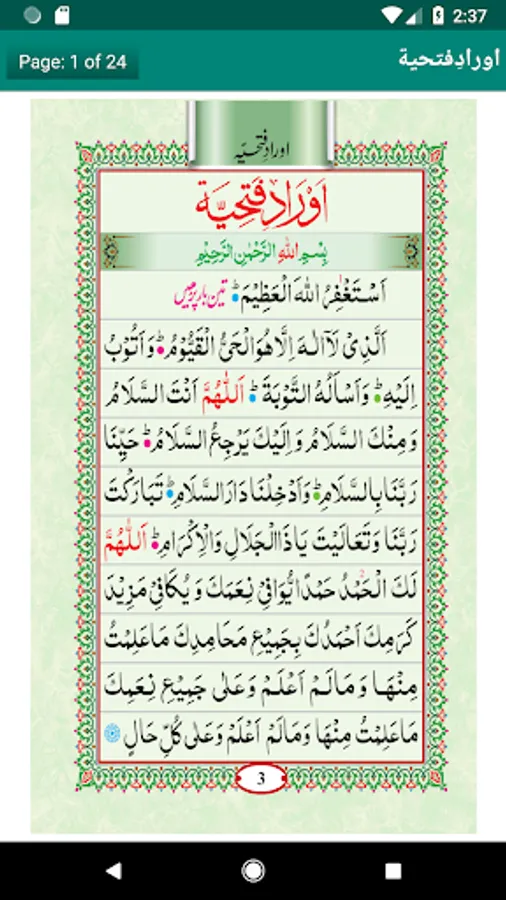 2:37
Page: 1 of 24
اورادِفتحية
اورادِفتحیّہ
اَوْرَادِ فَتْحِيَّة
بِسْمِ اللهِ الرَّحْمٰنِ الرَّحِيْمِ
اَسْتَغْفِرُ اللهَ الْعَظِيْمَ تین بار پڑھیں
اَلَّذِىْ لَآ اِلٰهَ اِلَّا هُوَ الْحَىُّ الْقَيُّوْمُ وَاَتُوْبُ
اِلَيْهِ وَاَسْاَلُهُ التَّوْبَةَ اَللّٰهُمَّ اَنْتَ السَّلَامُ
وَمِنْكَ السَّلَامُ وَاِلَيْكَ يَرْجِعُ السَّلَامُ حَيِّنَا
رَبَّنَا بِالسَّلَامِ وَاَدْخِلْنَا دَارَ السَّلَامِ تَبَارَكْتَ
رَبَّنَا وَتَعَالَيْتَ يَاذَا الْجَلَالِ وَالْاِكْرَامِ اَللّٰهُمَّ
لَكَ الْحَمْدُ حَمْدًا يُّوَافِىْ نِعَمَكَ وَيُكَافِىْ مَزِيْدَ
كَرَمِكَ اَحْمَدُكَ بِجَمِيْعِ مَحَامِدِكَ مَا عَلِمْتُ
مِنْهَا وَمَالَمْ اَعْلَمْ وَعَلٰى جَمِيْعِ نِعَمِكَ
مَاعَلِمْتُ مِنْهَا وَمَالَمْ اَعْلَمْ وَعَلٰى كُلِّ حَالٍ
3